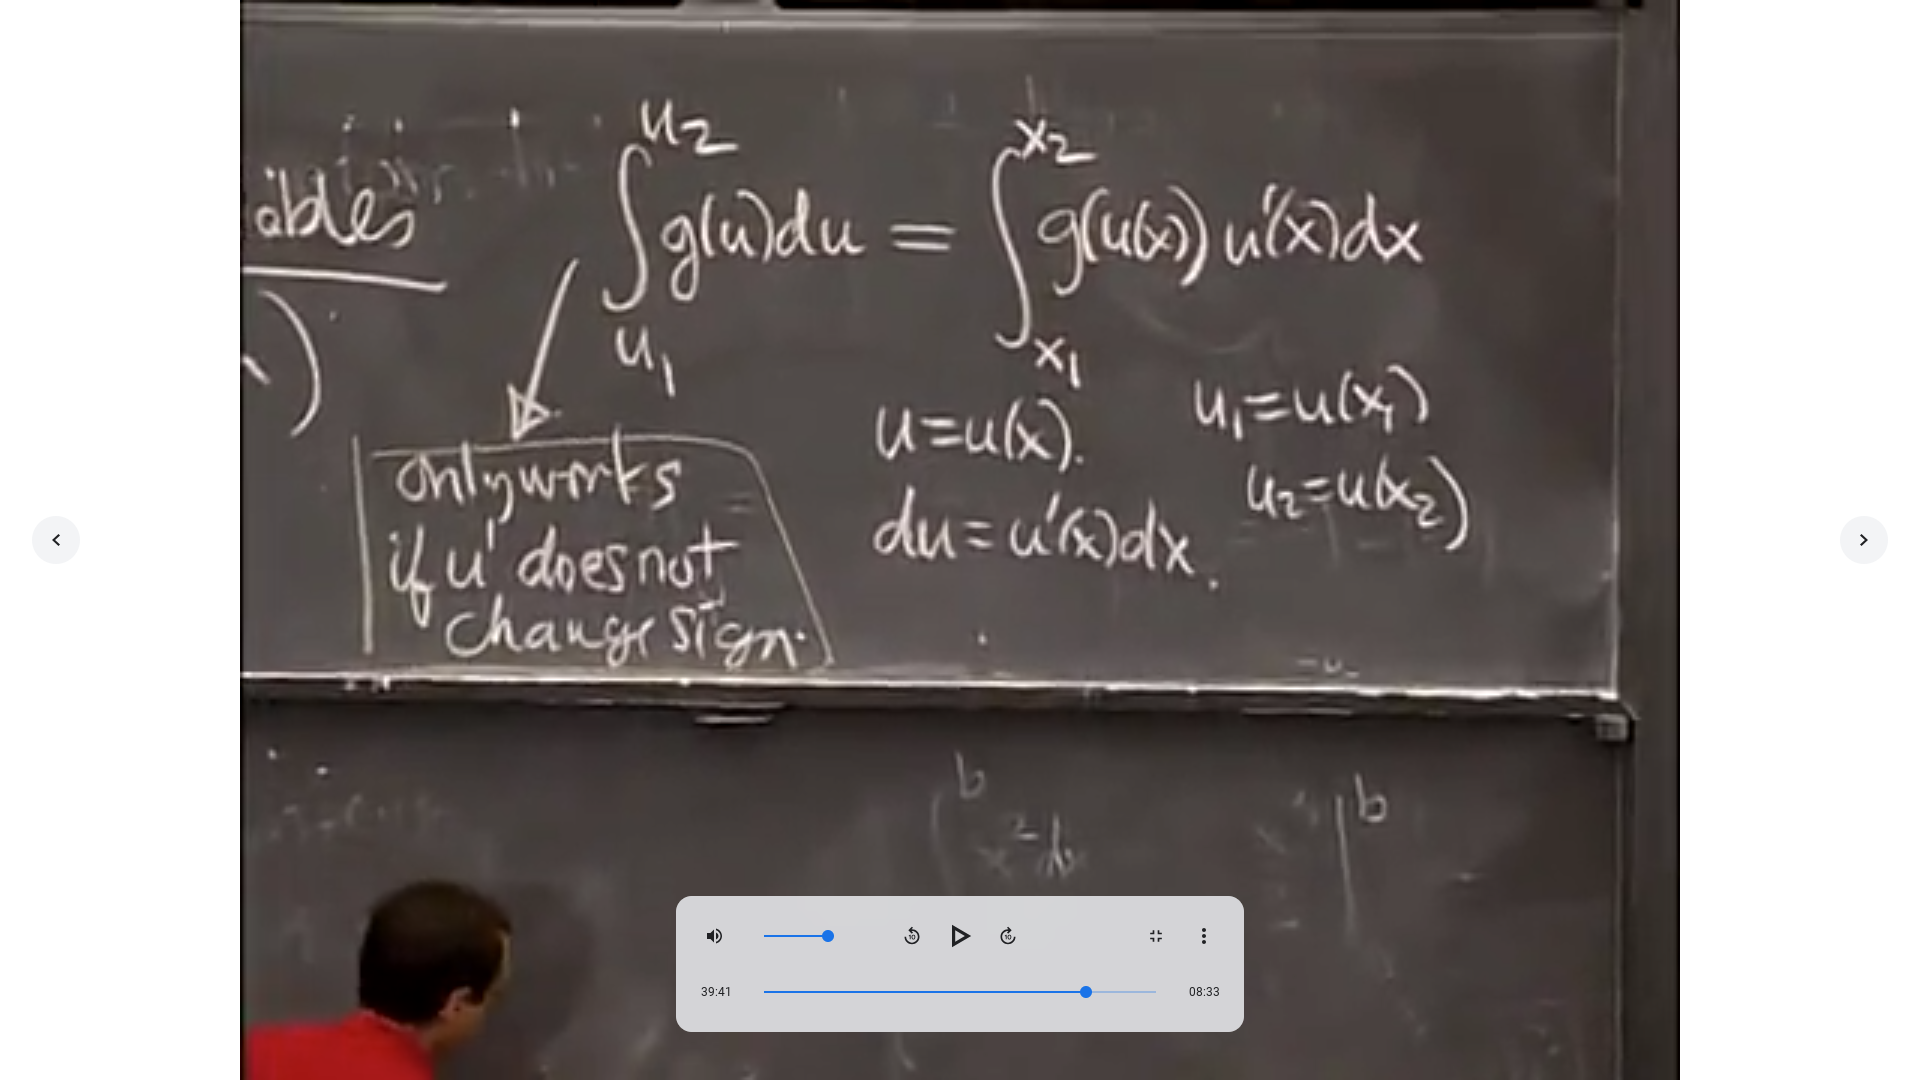 ables
∫_{u₁}^{u₂} g(u)du = ∫_{x₁}^{x₂} g(u(x)) u'(x)dx
)
only works
if u' does not
change sign.
u=u(x).
du=u'(x)dx.
u₁=u(x₁)
u₂=u(x₂)
b
x² dx
b
10
10
39:41
08:33